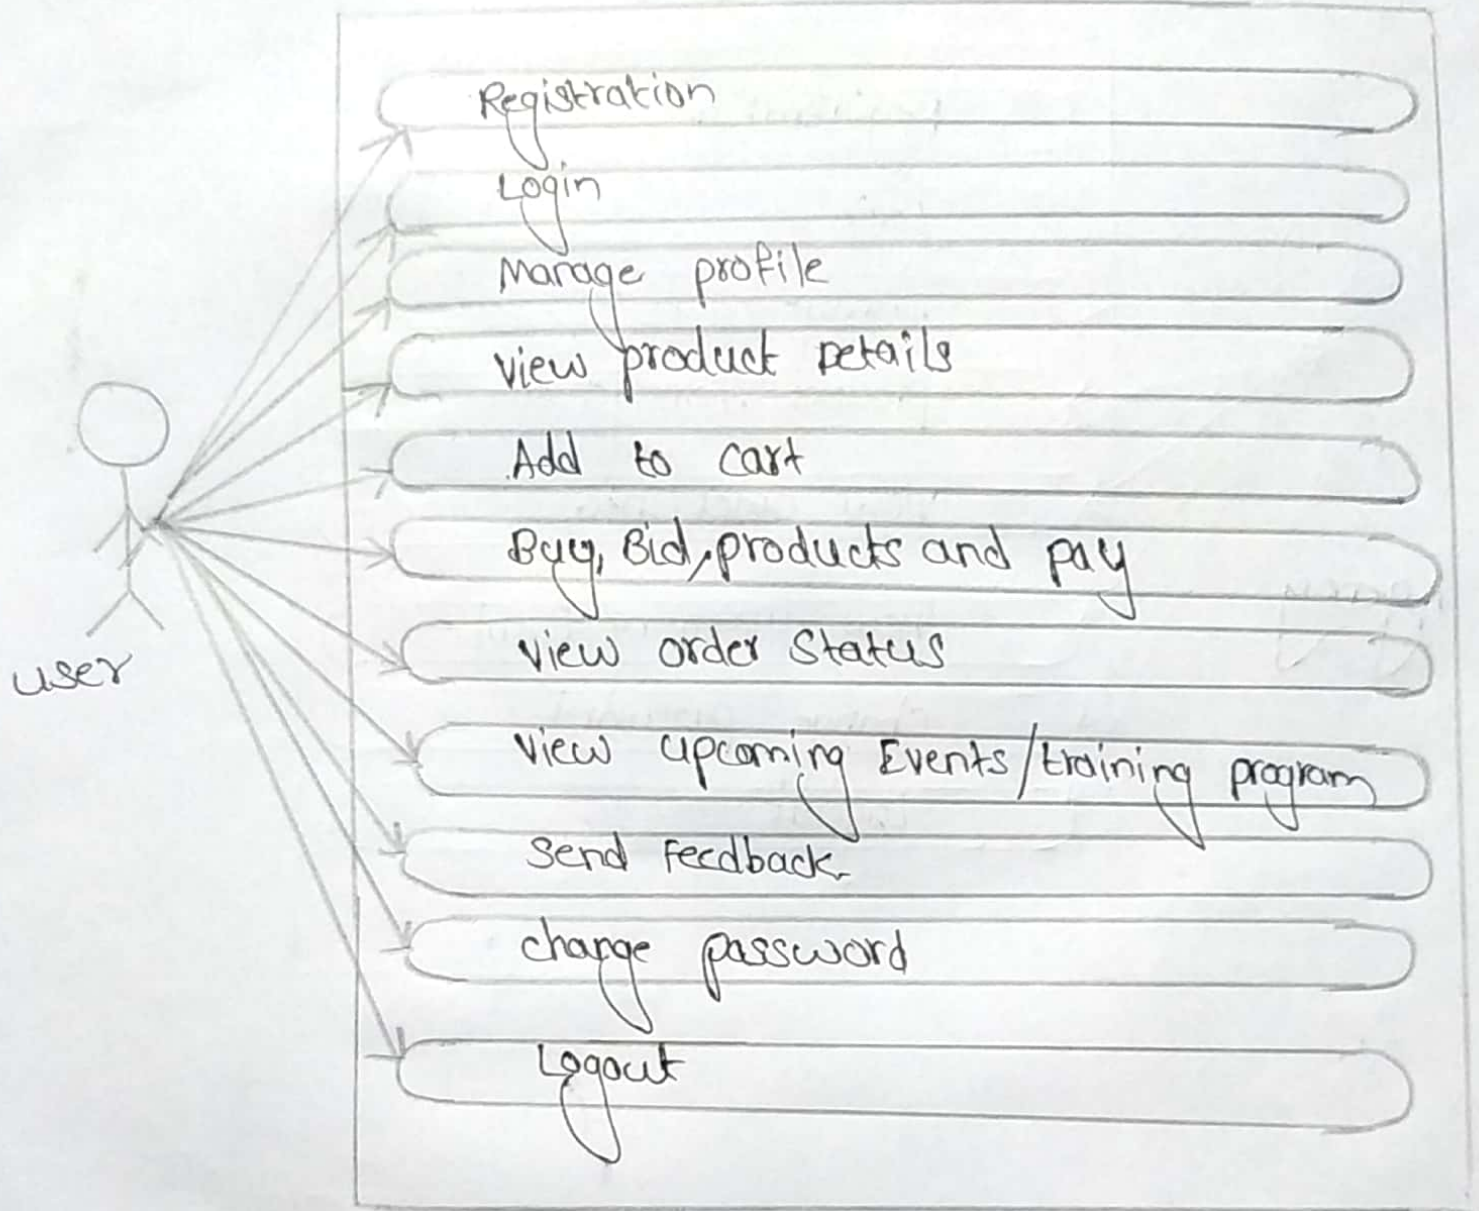 Registration
Login
Manage profile
View product Details
Add to cart
Buy, Bid, products and pay
View order Status
View upcoming Events/training program
Send Feedback
change password
Logout
user